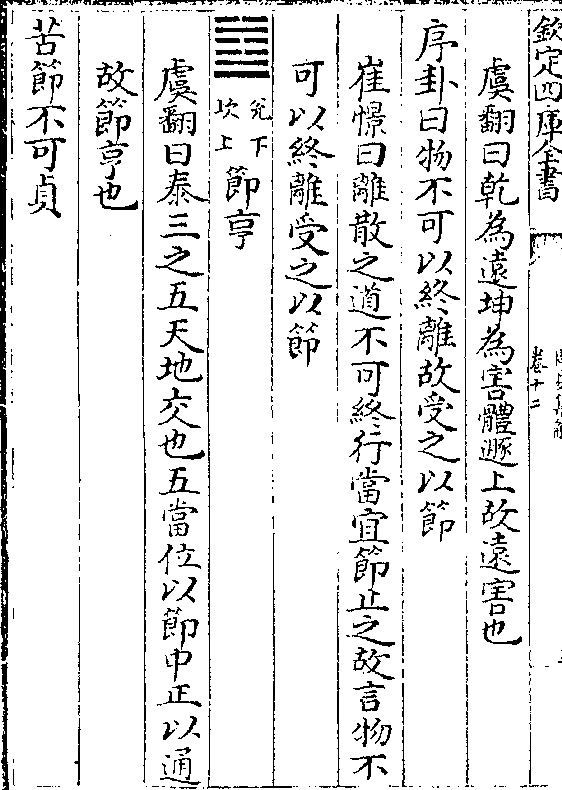 欽定四庫全書
卷十二
虞翻曰乾為遠坤為害體遯上故遠害也
序卦曰物不可以終離故受之以節
崔憬曰離散之道不可終行當宜節止之故言物不
可以終離受之以節
兌下
坎上
節亨
虞翻曰泰三之五天地交也五當位以節中正以通
故節亨也
苦節不可貞